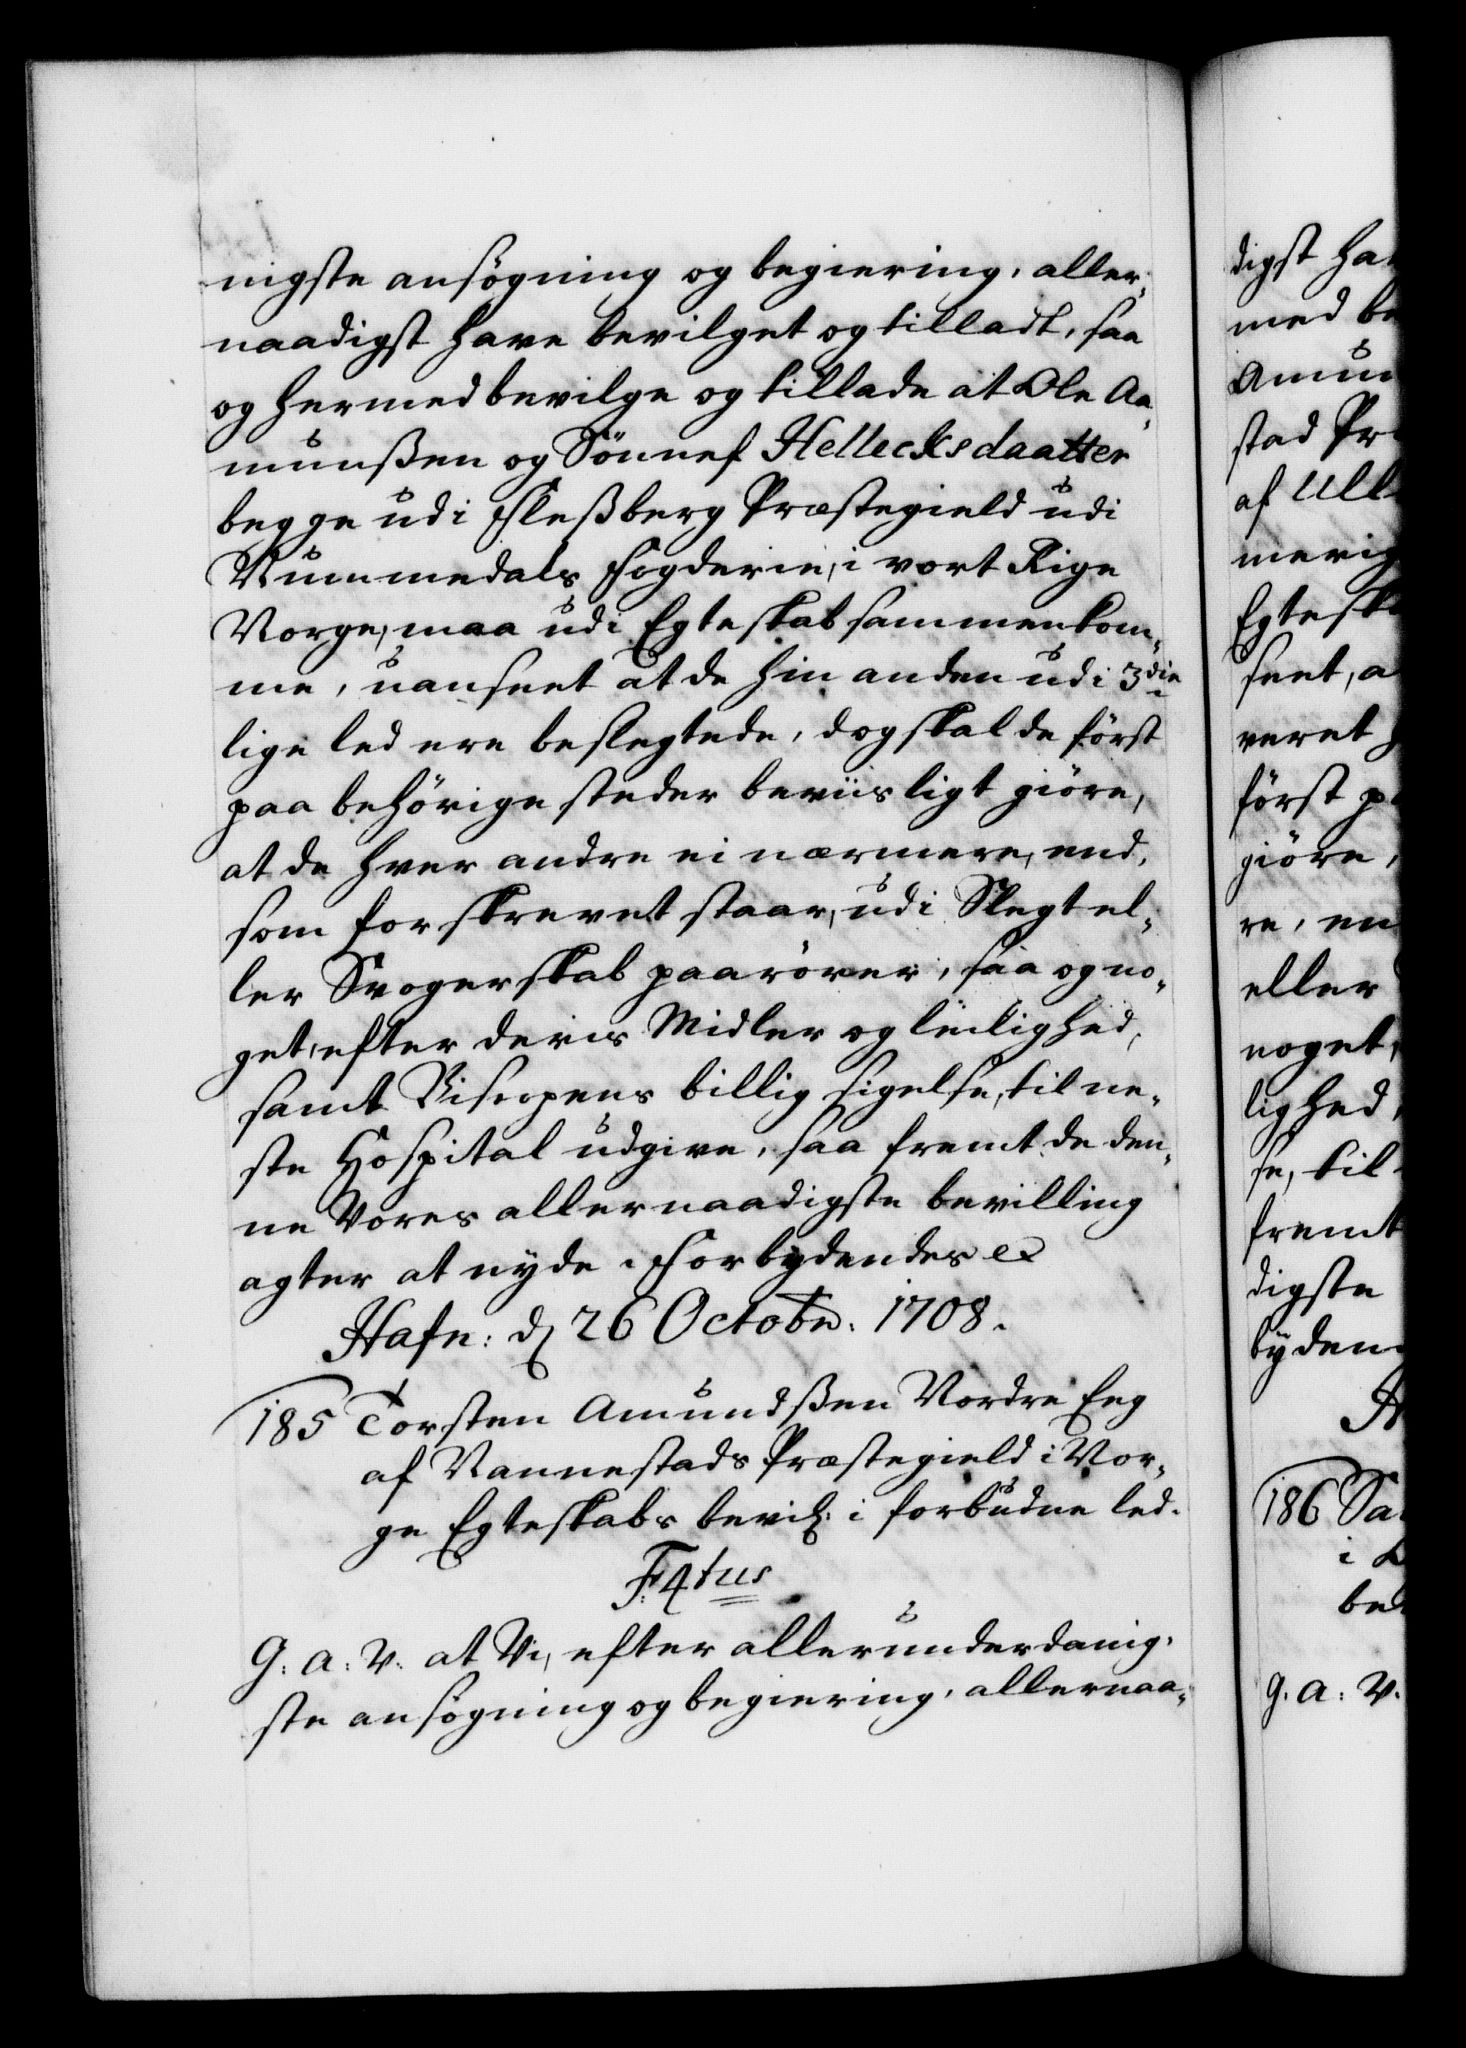 nigste ansøgning og begiering, aller-
naadigst have bevilget og tilladt, saa
og hermed bevilge og tillade at Ole Aa-
munßen og Sønnef Hellecksdaatter
begge udi Fleßberg Præstegield udi
Nummedals Fogderie, i vort Rige
Norge, maa udi Egteskab sammenkom-
me, uanseet at de hin anden udi 3die
lige led ere beslegtede, dog skal de først
paa behørige steder beviisligt giøre,
at de hver andre ei nærmere, end,
som forskrevet staar, udi Slegt el-
ler Svogerskab paarører, saa og no-
get, efter deris Midler og leilighed,
samt Biscopens billig sigelse, til ne-
ste Hospital udgive, saa fremt de den-
ne Vores allernaadigste bevilling
agter at nyde. Forbydendes &
Hafn: d 26 Octobr. 1708.
185 Torsten Amundßen Nordre Eng
af Nannestads Præstegield i Nor-
ge Egteskabs bevil: i forbudne led.
F: 4tus
G: A: V: at Vi, efter allerunderdanig-
ste ansøgning og begiering, allernaa-
digst ha
med be
Amun
stad Pr
af Ull
merig
Egtesk
seet, a
veret
først p
giøre,
re, en
eller
noget,
lighed
se, til
fremt
digste
byden
186 Sa
i
be
G. A: V.